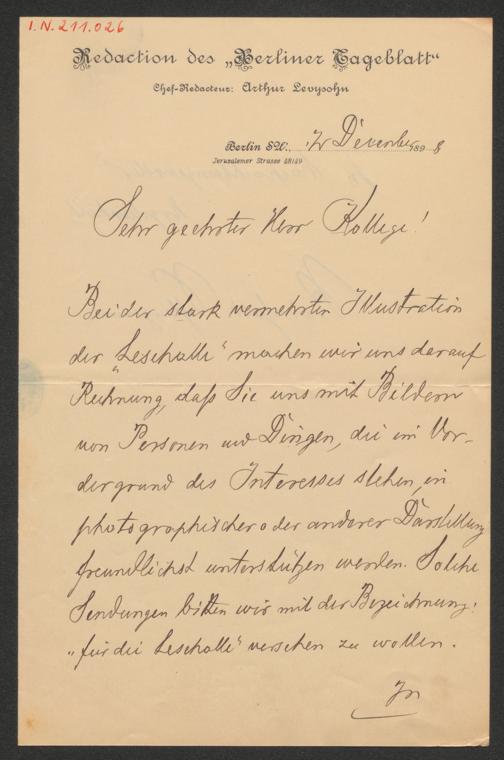 I.N. 211.026
Redaction des „Berliner Tageblatt“
Chef-Redacteur: Arthur Levysohn
Berlin SW., 12 December 1898
Jerusalemer Strasse 48/49
Sehr geehrter Herr Kollege!
Bei der stark vermehrten Illustration
der „Lesehalle“ machen wir uns darauf
Rechnung, daß Sie uns mit Bildern
von Personen und Dingen, die im Vor-
dergrund des Interesses stehen, in
photographischer oder anderer Darstellung
freundlichst unterstützen werden. Solche
Sendungen bitten wir mit der Bezeichnung:
„für die Lesehalle“ versehen zu wollen.
In